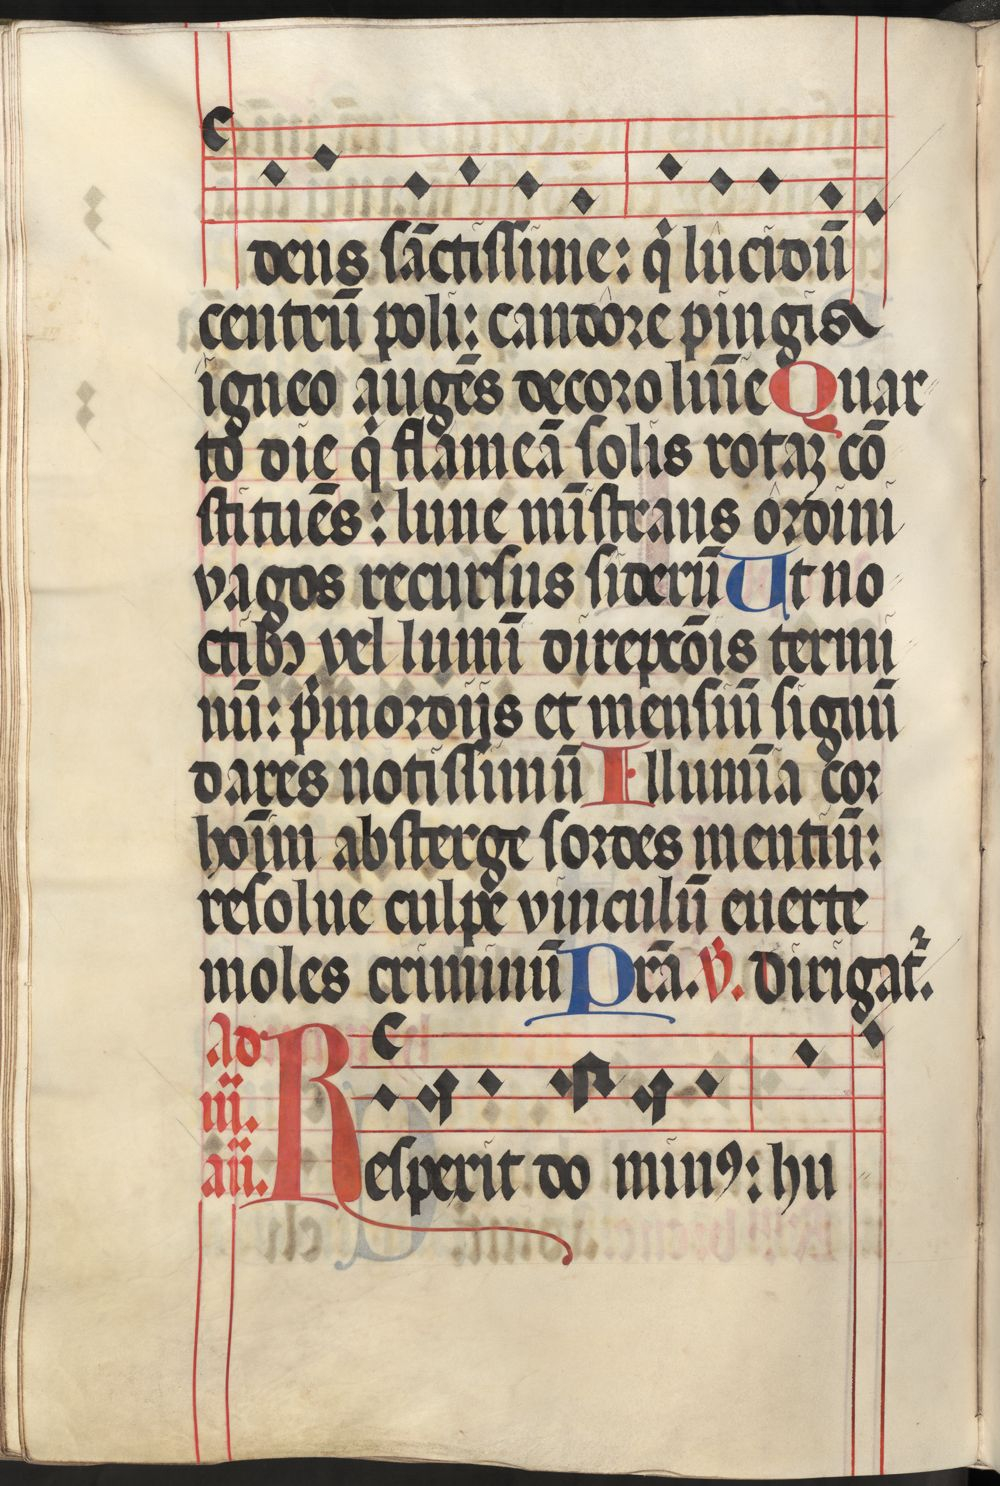 deus sāctissime: q̇ lucidū
centrū poli: candore pingis
igneo augēs decoro lumīe Quar
to die q̇ flāmeā solis rotaꝫ cō
stituēs: lune mīstrans ordini
vagos recursus siderū Ut no
ctibꝫ vel lumī direpc̄ōis termi
nū: p̄mordijs et mensiū signū
dares notissimū Illumīa cor
hoīm absterge sordes mentiū:
resolue culpe vinculū euerte
moles criminū Prā. ℣. dirigat᷑.
Ad
iij.
añ. Resperit do minꝰ: hu